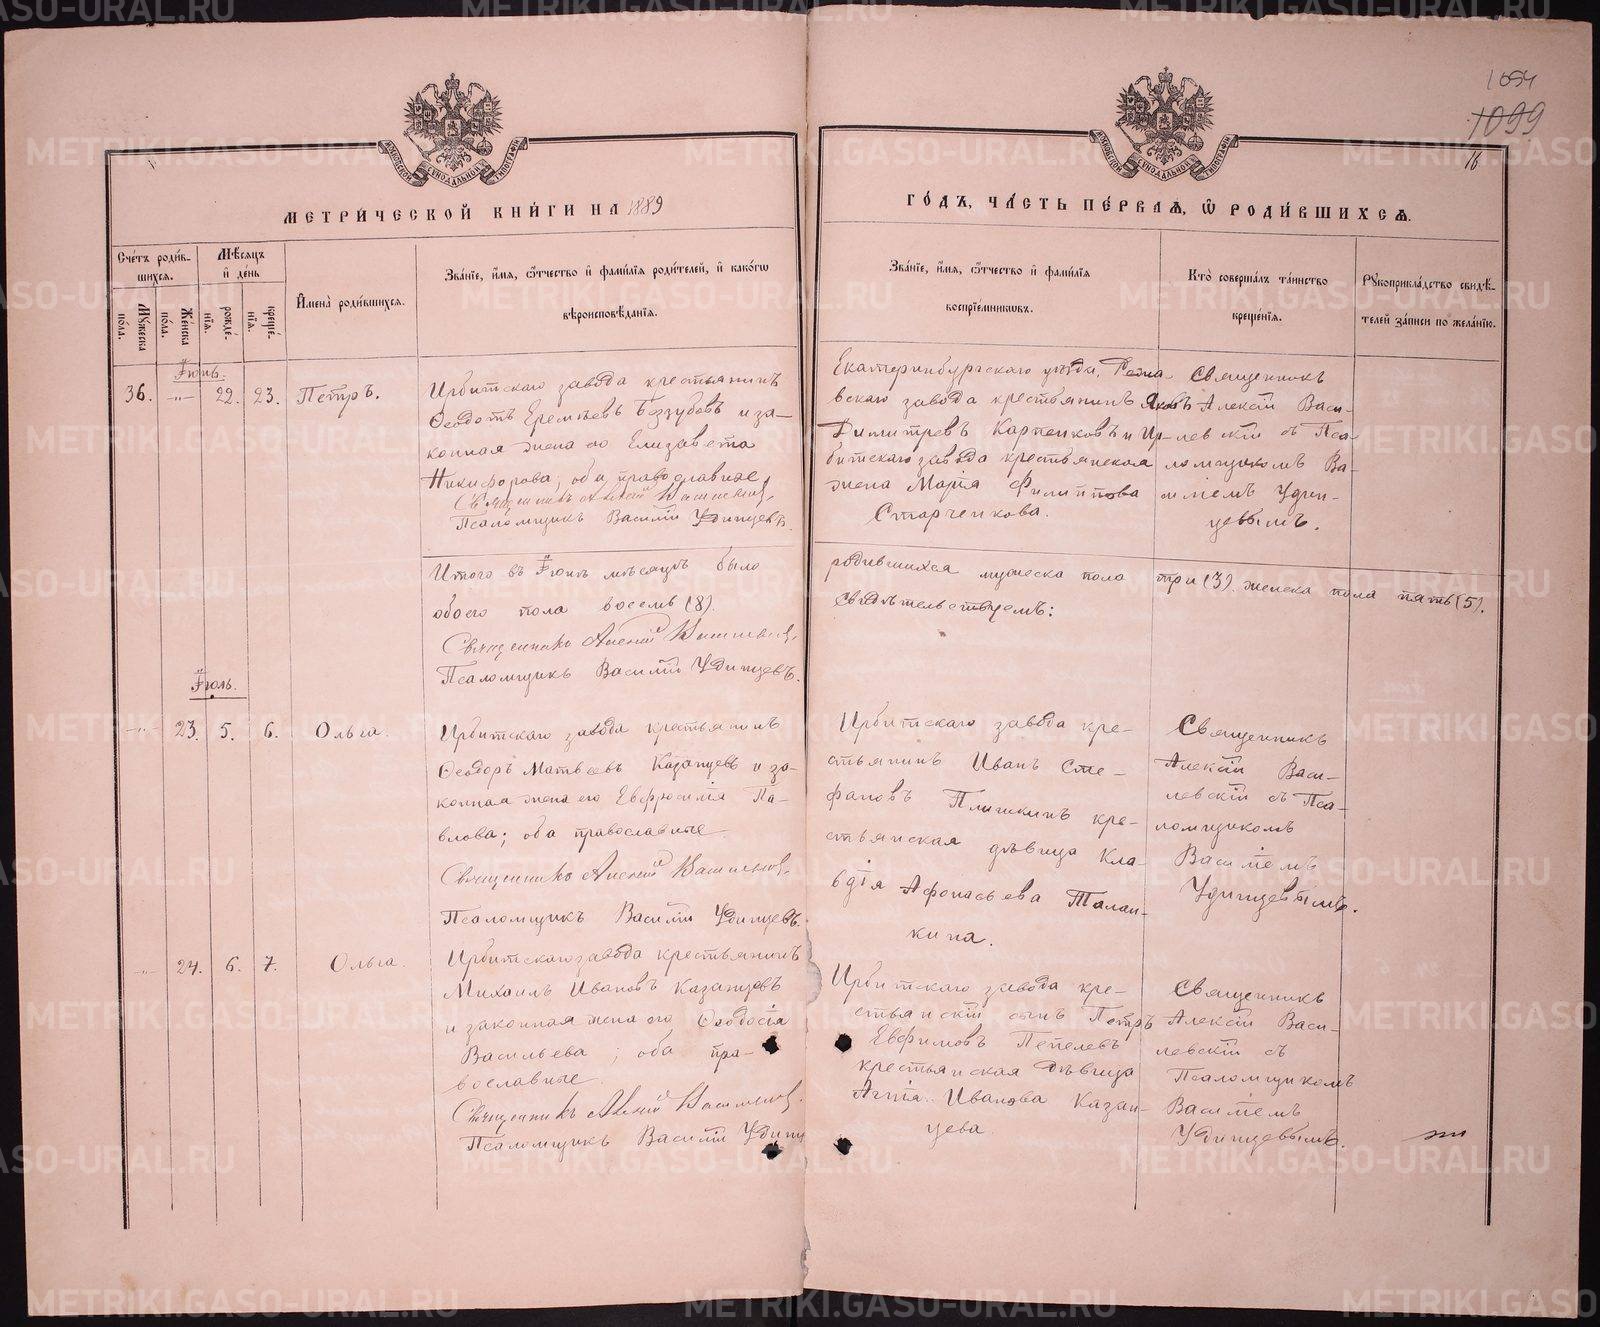 1094
1099
16
МЕТРИ́ЧЕСКОЙ КНИ́ГИ НА 1889
ГО́ДЪ, ЧА́СТЬ ПЕ́РВАЯ, Ѽ РОДИ́ВШИХСЯ.
Сче́тъ роди́в-
шихся.
Му́жеска по́ла.
Же́нска по́ла.
Мѣ́сяцъ
и де́нь
рожде́-
нія.
креще́-
нія.
И҆мена̀ роди́вшихся.
Зва́ніе, и҆́мя, ѻ҆́тчество и҆ фами́лія роди́телей, и҆ како́гѡ
вѣроисповѣ́данія.
Зва́ніе, и҆́мя, ѻ҆́тчество и҆ фами́лія
воспріе́мниковъ.
Кто̀ соверша́лъ та́инство
креще́нія.
Рꙋкоприкла́дство свидѣ́-
телей за́писи по жела́нію.
Іюнь.
36. -„- 22. 23. Петръ.
Ирбитскаго завода крестьянинъ
Ѳеодотъ Еремѣевъ Беззубовъ и за-
конная жена его Елизавета
Никифорова; оба православные
Священникъ Алексій Василевскій.
Псаломщикъ Василій Удинцевъ.
Екатеринбургскаго уѣзда,
вскаго завода крестьянинъ Яковъ
Димитревъ Карпенковъ и Ир-
битскаго завода крестьянская
жена Марія Филиппова
Старченкова.
Священникъ
Алексій Васи-
левскій съ Пса-
ломщикомъ Ва-
силіемъ Удин-
цевымъ.
Итого въ Іюнѣ мѣсяцѣ было
обоего пола восемь (8).
Священникъ Алексій Василевскій.
Псаломщикъ Василій Удинцевъ.
родившихся мужеска пола три (3). женска пола пять (5).
Свидѣтельствуемъ:
Іюль.
-„- 23. 5. 6. Ольга.
Ирбитскаго завода крестьянинъ
Ѳеодоръ Матвѣевъ Казанцевъ и за-
конная жена его Евфросинія Па-
влова; оба православные
Священникъ Алексій Василевскій.
Псаломщикъ Василій Удинцевъ.
Ирбитскаго завода кре-
стьянинъ Иванъ Сте-
фановъ Плишкинъ кре-
стьянская дѣвица Кла-
вдія Афонасьева Талан-
кина.
Священникъ
Алексій Васи-
левскій съ Пса-
ломщикомъ
Василіемъ
Удинцевымъ.
-„- 24. 6. 7. Ольга.
Ирбитскаго завода крестьянинъ
Михаилъ Ивановъ Казанцевъ
и законная жена его Ѳеодосія
Васильева; оба пра-
вославные
Священникъ Алексій Василевскій.
Псаломщикъ Василій Удинц
Ирбитскаго завода кре-
стьянскій сынъ Петръ
Евфимовъ Пепелевъ
крестьянская дѣвица
Агнія Иванова Казан-
цева
Священникъ
Алексій Васи-
левскій съ
Псаломщикомъ
Василіемъ
Удинцевымъ.
METRIKI.GASO-URAL.RU